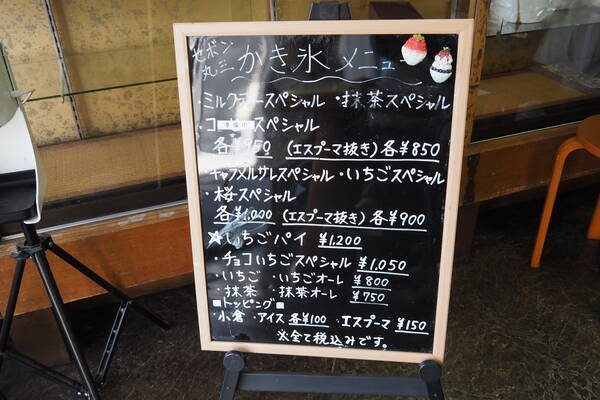 セボン
丸三 かき氷メニュー
・ミルクティースペシャル ・抹茶スペシャル
スペシャル
各¥950 (エスプーマ抜き) 各¥850
・キャラメルサレスペシャル・いちごスペシャル
・桜スペシャル
各¥1,000 (エスプーマ抜き) 各¥900
★いちごパイ ¥1,200
・チョコいちごスペシャル ¥1,050
・いちご ・いちごオーレ ¥800
・抹茶 ・抹茶オーレ ¥750
■トッピング■
・小倉 ・アイス 各¥100 ・エスプーマ ¥150
※全て税込みです。